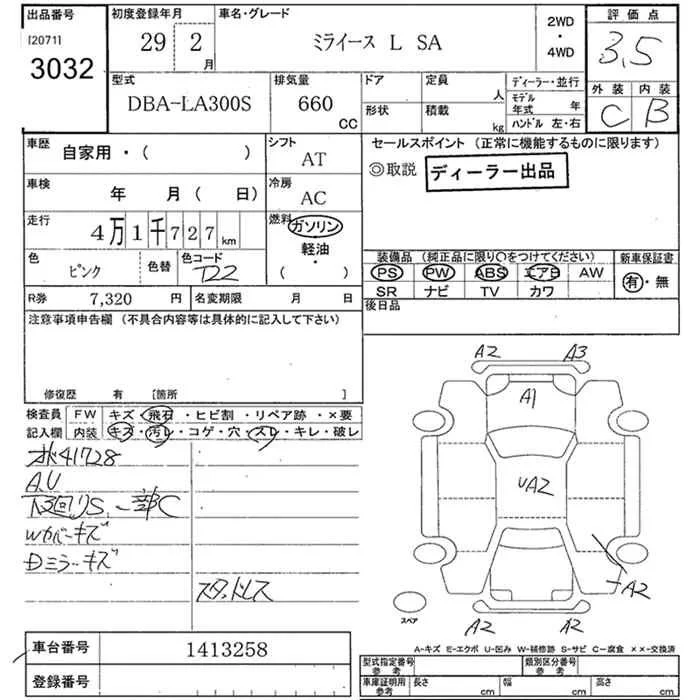 出品番号 初度登録年月 車名・グレード 2WD ・ 4WD 評価点
[2071] 3032 29 2 月 ミライース L SA 3.5
型式 排気量 ドア 定員 人 ディーラー・並行 外装 内装
DBA-LA300S 660 CC 形状 積載 kg モデル年式 年 ハンドル 左・右 C B
車歴 自家用・( ) シフト AT セールスポイント (正常に機能するものに限ります)
◎取説 ディーラー出品
車検 年 月 ( 日) 冷房 AC
走行 4万1千727km 燃料 ガソリン
軽油・
( )
色 ピンク 色替 色コード T22
装備品 (純正品に限り○をつけてください) 新車保証書
PS PW ABS エアB AW 有・無
SR ナビ TV カワ
R券 7,320 円 名変期限 月 日 後日品
注意事項申告欄 (不具合内容等は具体的に記入して下さい)
修復歴 有 [箇所 ]
検査員 FW キズ・飛石・ヒビ割・リペア跡・×要
記入欄 内装 キズ・汚レ・コゲ・穴・スレ・キレ・破レ
41728
A.U
下回りS、一部C
Wカバーキズ
Dミラーキズ
スタッドレス
A2 A3
A1
UA2
A2
A2 A2
スペア
A-キズ E-エクボ U-凹み W-補修跡 S-サビ C-腐食 ××-交換済
車台番号 1413258
登録番号
型式指定番号 参考 類別区分番号 参考
車庫証明用 参考 長さ cm 幅 cm 高さ cm